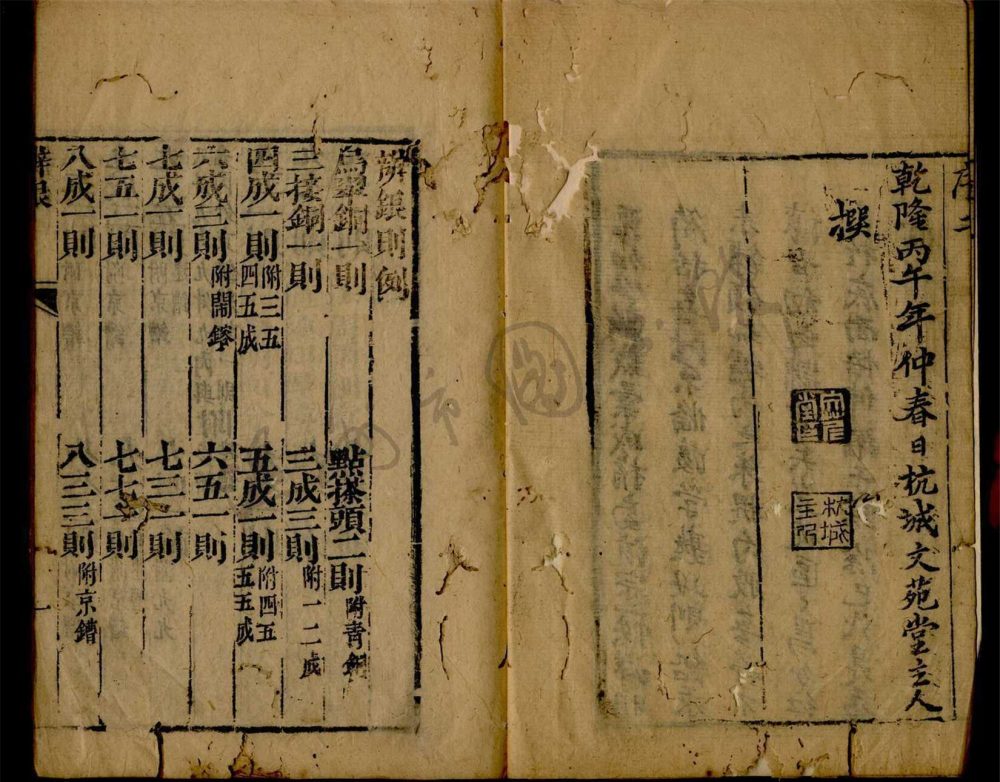 乾隆丙午年仲春日杭城文苑堂主人
撰
辨銀則例
銅一則　點搽頭二則 附青銅
三接銅一則　三成三則 附一二成
四成一則 附三五四五成　五成一則 附四五五五成
六成三則 附鬧　六五一則
七成一則　七三一則
七五一則　七七一則
八成一則　八三三則 附京
辨銀　一